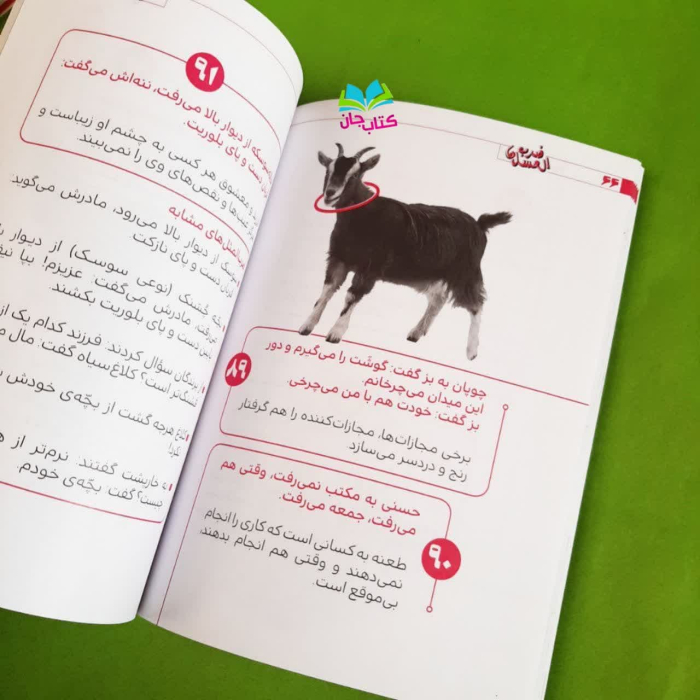 ۶۶
ضرب
المسلی
کتاب جان
چوپان به بز گفت: گوشت را می‌گیرم و دور
این میدان می‌چرخانم.
بز گفت: خودت هم با من می‌چرخی.
۸۹
برخی مجازات‌ها، مجازات‌کننده را هم گرفتار
رنج و دردسر می‌سازد.
حسنی به مکتب نمی‌رفت، وقتی هم
می‌رفت، جمعه می‌رفت.
۹۰
طعنه به کسانی است که کاری را انجام
نمی‌دهند و وقتی هم انجام بدهند،
بی‌موقع است.
۹۱
سوسکه از دیوار بالا می‌رفت، ننه‌اش می‌گفت:
دست و پای بلوریت.
معشوق هر کسی به چشم او زیباست و
عیب‌ها و نقص‌های وی را نمی‌بیند.
ضرب‌المثل‌های مشابه
از دیوار بالا می‌رود، مادرش می‌گوید:
قربان دست و پای نازکت.
خبتنک (نوعی سوسک) از دیوار
می‌رفت، مادرش می‌گفت: عزیزم! بیا
دست و پای بلوریت بکشند.
سؤال کردند: فرزند کدام یک از
است؟ کلاغ سیاه گفت: مال
کلاغ هرچه گشت از بچّه‌ی خودش
به خارپشت گفتند: نرم‌تر از
چیست؟ گفت: بچّه‌ی خودم.